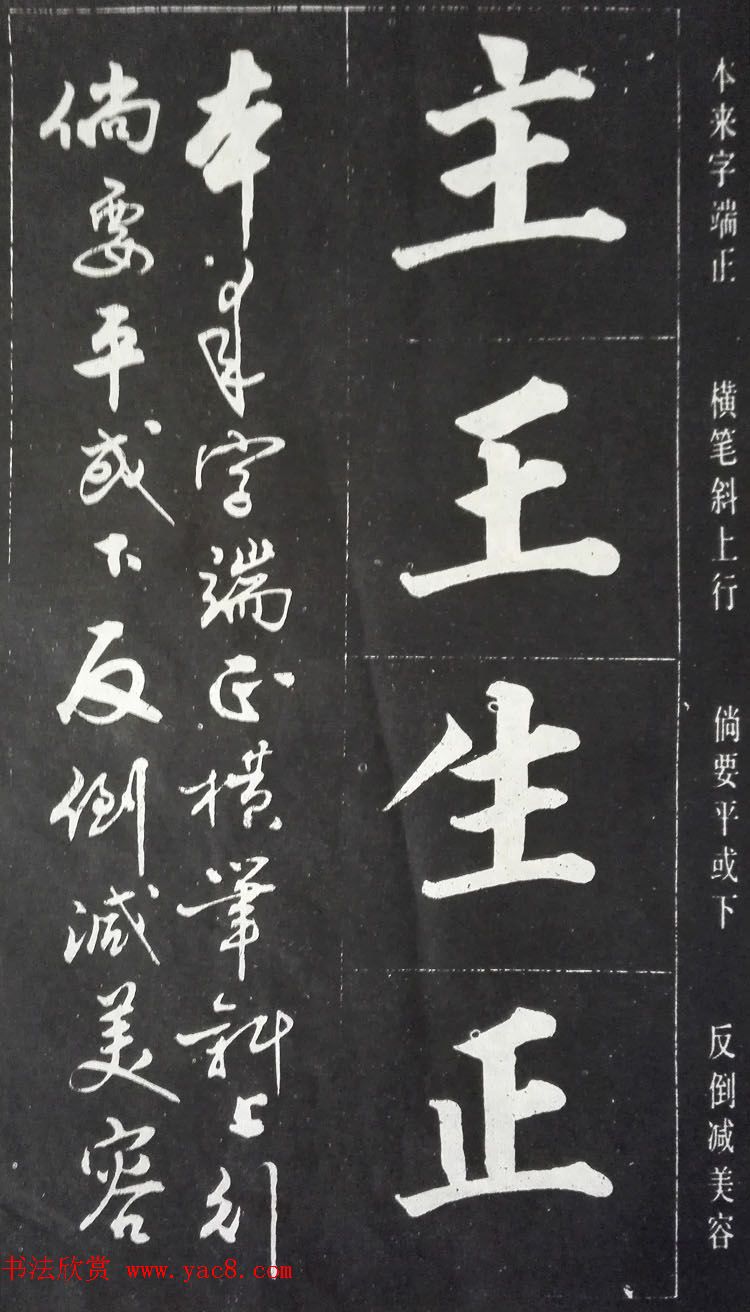 本来字端正 横笔斜上行 倘要平或下 反倒减美容
主王生正
本来字端正横筆斜上行
倘要平或下反倒減美容
书法欣赏 www.yac8.com